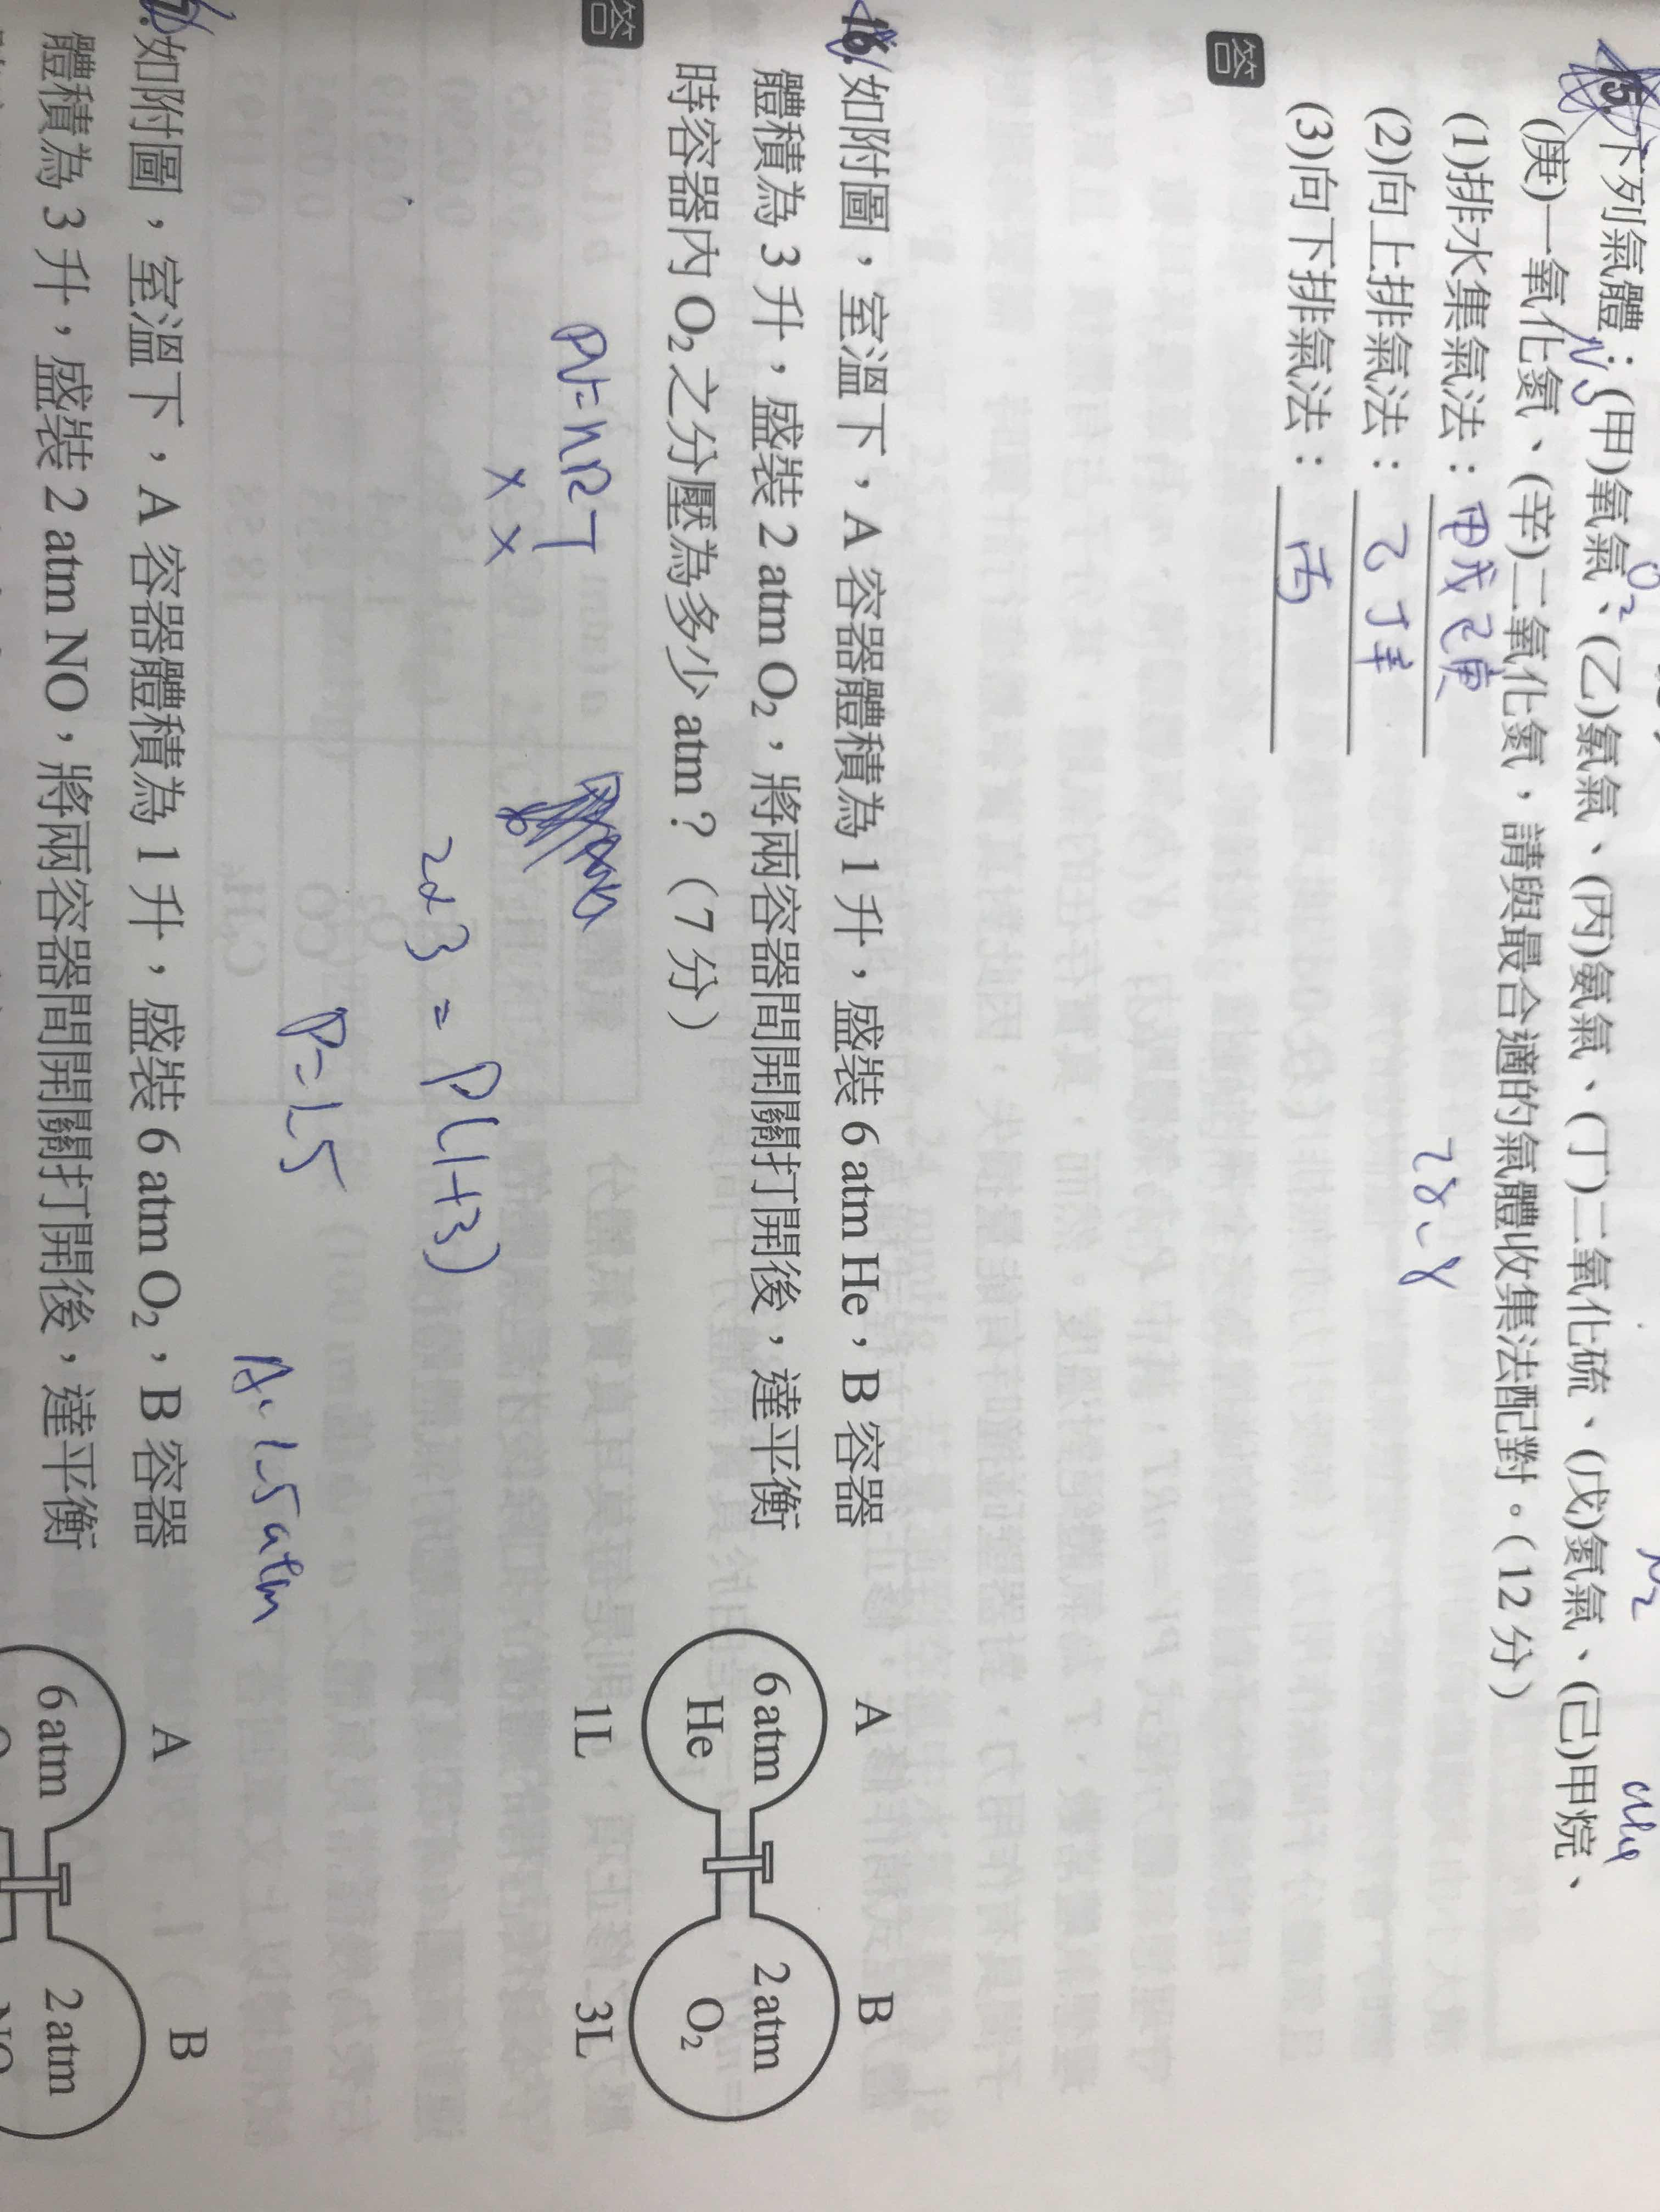 15.下列氣體：(甲)氧氣、(乙)氯氣、(丙)氨氣、(丁)二氧化硫、(戊)氮氣、(己)甲烷、
O₂
N₂
CH₄
(庚)一氧化氮、(辛)二氧化氮，請與最合適的氣體收集法配對。（12分）
(1)排水集氣法：甲戊己庚
(2)向上排氣法：乙丁辛
(3)向下排氣法：丙
答
16.如附圖，室溫下，A 容器體積為 1 升，盛裝 6 atm He，B 容器
體積為 3 升，盛裝 2 atm O₂，將兩容器間開關打開後，達平衡
時容器內 O₂之分壓為多少 atm？（7分）
A B
6 atm He
2 atm O₂
1L 3L
答
PV=nRT
x x
2x3 = P(1+3)
P=1.5
A: 1.5atm
如附圖，室溫下，A 容器體積為 1 升，盛裝 6 atm O₂，B 容器
體積為 3 升，盛裝 2 atm NO，將兩容器間開關打開後，達平衡
A B
6 atm
2 atm
NO